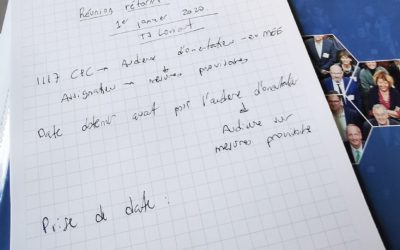 Réunion réforme
1er janvier 2020
TJ Lorient
1117 CPC → Audience d'orientation - ou MEE
Assignation → mesures provisoires
Date d'obtenir avant pour l'audience d'orientation
et
Audience sur
mesures provisoires
Prise de date :